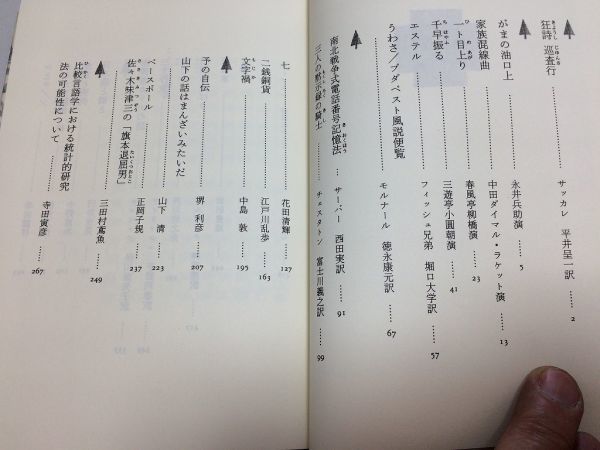 狂詩 巡査行 …… サッカレ 平井呈一訳 …… 2
がまの油口上 …… 永井兵助演 …… 5
家族混線曲 …… 中田ダイマル・ラケット演 …… 13
一ト目上り …… 春風亭柳橋演 …… 23
千早振る …… 三遊亭小圓朝演 …… 41
エステル …… フィッシェ兄弟 堀口大学訳 …… 57
うわさ/ブダペスト風説便覧 …… モルナール 徳永康元訳 …… 67
南北戦争式電話番号記憶法 …… サーバー 西田実訳 …… 91
三人の黙示録の騎士 …… チェスタトン 富士川義之訳 …… 99
七 …… 花田清輝 …… 127
二銭銅貨 …… 江戸川乱歩 …… 163
文字禍 …… 中島 敦 …… 195
予の自伝 …… 堺 利彦 …… 207
山下の話はまんざいみたいだ …… 山下 清 …… 223
ベースボール …… 正岡子規 …… 237
佐々木味津三の「旗本退屈男」 …… 三田村鳶魚 …… 249
比較言語学における統計的研究
法の可能性について …… 寺田寅彦 …… 267